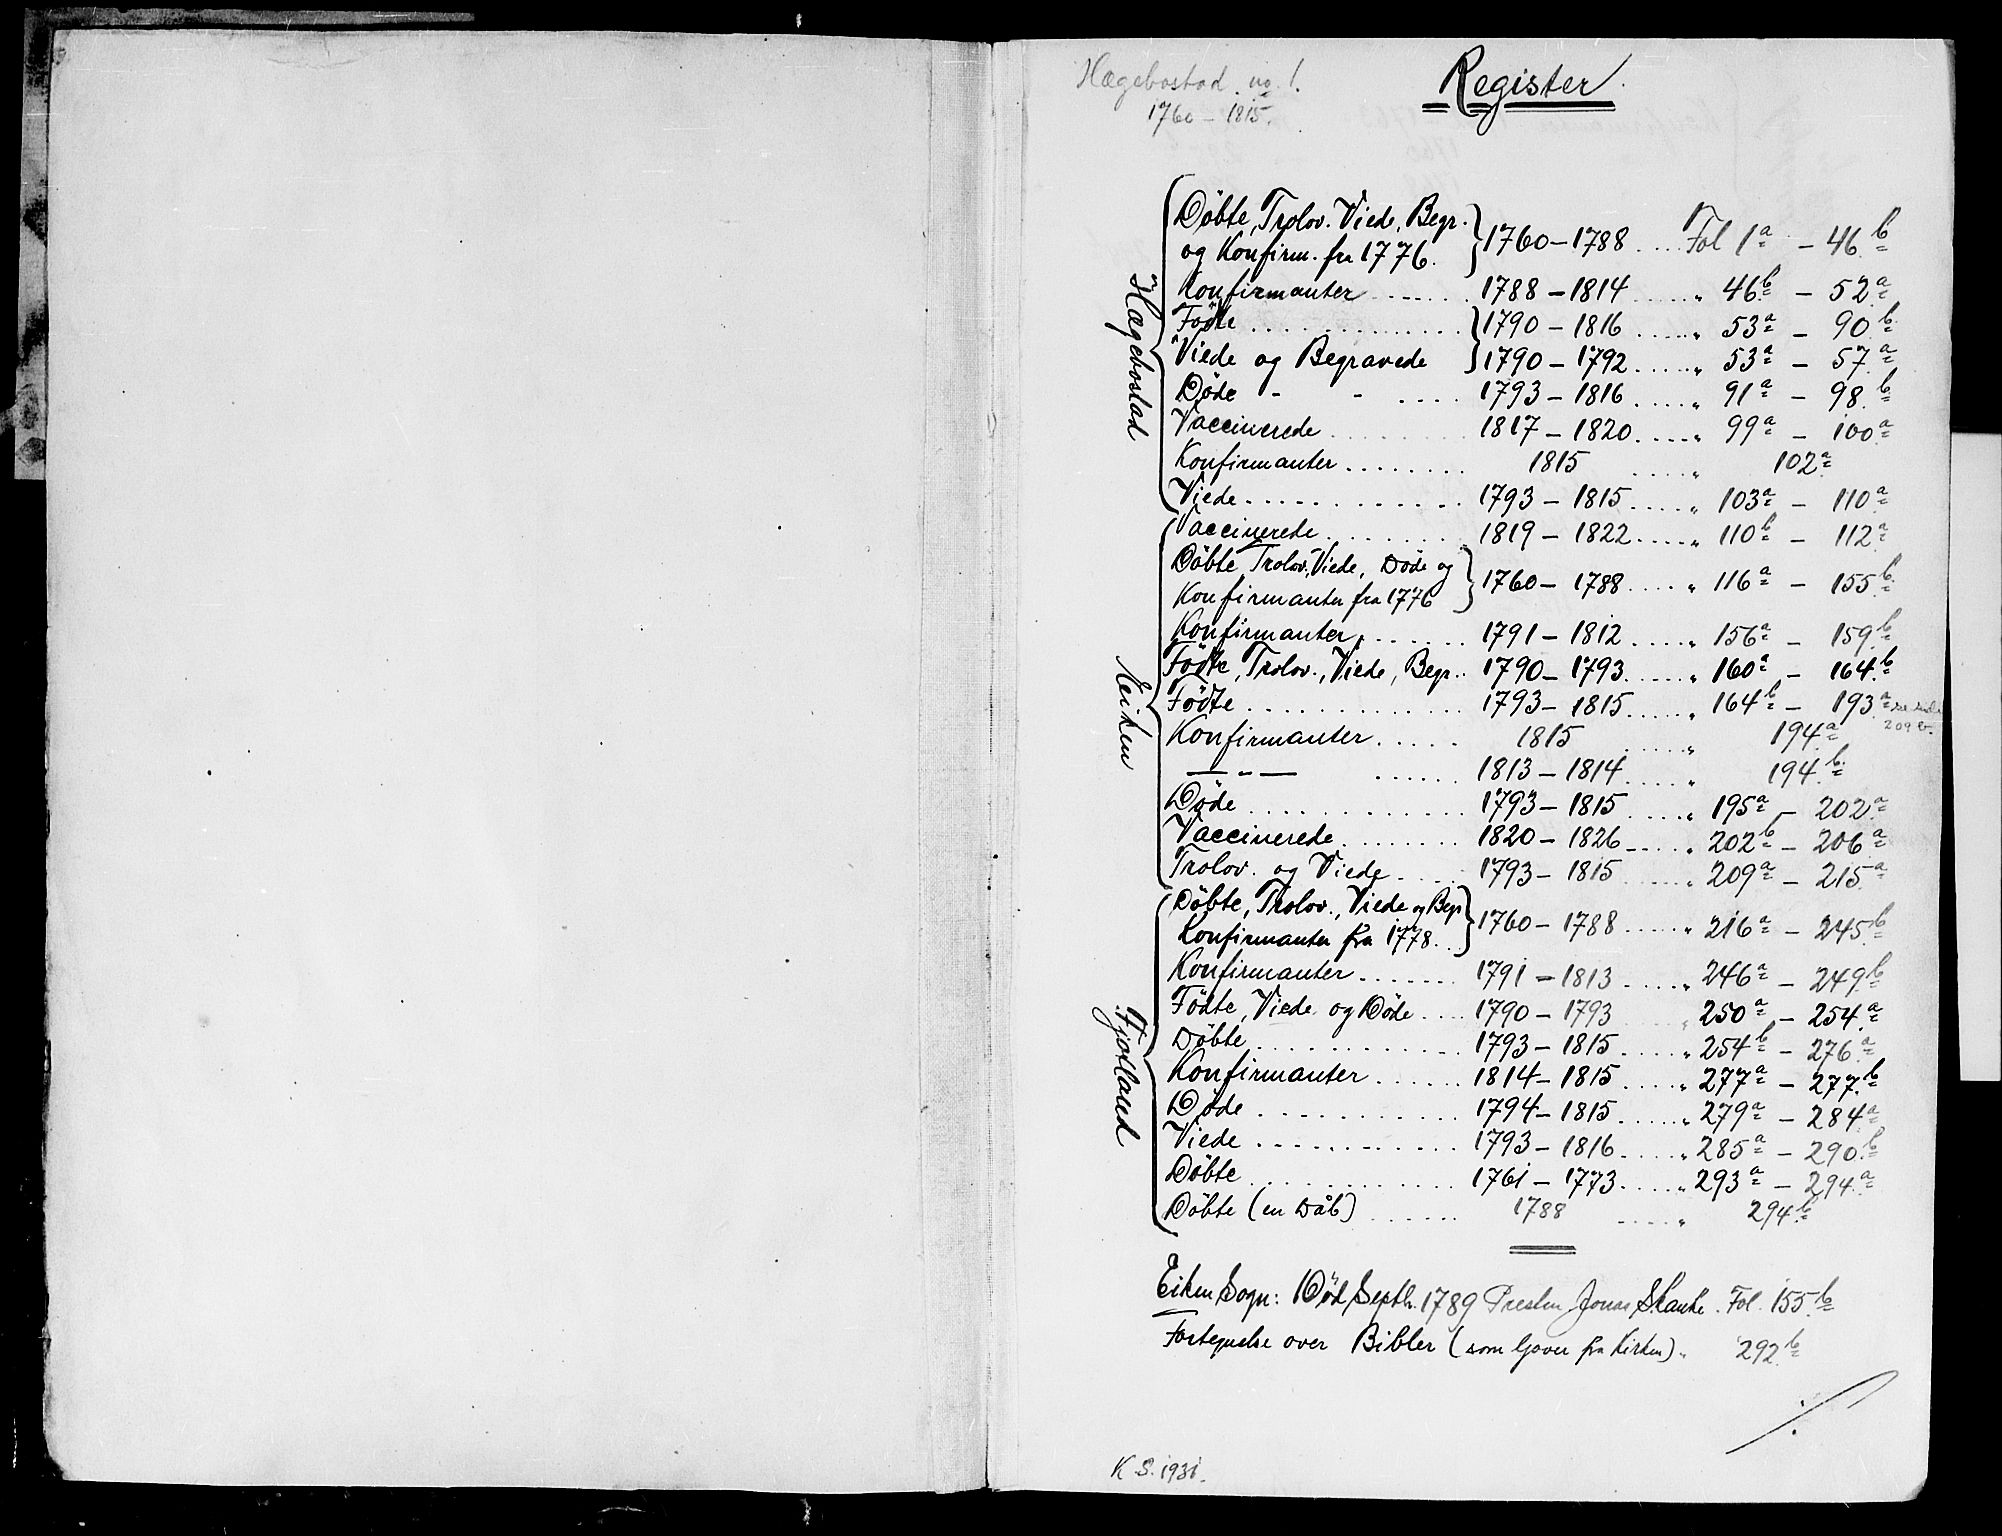 Hægebostad. no. 1.
1760 – 1815.
Register.
Hægebostad
Döbte, Trolov. Viede, Begr. og Konfirm. fra 1776. } 1760 – 1788 .... Fol 1a – 46b
Konfirmanter ...... 1788 – 1814 ..... " 46b – 52a
Födte ............. } 1790 – 1816 ..... " 53a – 90b
Viede og Begravede } 1790 – 1792 ..... " 53a – 57a
Døde - - .... 1793 – 1816 ..... " 91a – 98b
Vaccinerede ........ 1817 – 1820 ..... " 99a – 100a
Konfirmanter ........ 1815 ..... " 102a
Viede ............. 1793 – 1815 ..... " 103a – 110a
Eiken
Vaccinerede ......... 1819 – 1822 ..... " 110b – 112a
Döbte, Trolov., Viede, Døde og Konfirmanter fra 1776 } 1760 – 1788 ..... " 116a – 155b
Konfirmanter ....... 1791 – 1812 ..... " 156a – 159b
Födte, Trolov., Viede, Begr. .. 1790 – 1793 ..... " 160a – 164b
Födte ............. 1793 – 1815 ..... " 164b – 193a
209 b.
Konfirmanter ..... 1815 ..... " 194a
— " — ...... 1813 – 1814 ..... " 194b
Døde ............. 1793 – 1815 ..... " 195a – 202a
Vaccinerede ........ 1820 – 1826 ..... " 202b – 206a
Trolov. og Viede ..... 1793 – 1815 ..... " 209a – 215a
Fjotland
Döbte, Trolov., Viede og Begr Konfirmanter fra 1778. } 1760 – 1788 ..... " 216a – 245b
Konfirmanter ...... 1791 – 1813 ..... " 246a – 249b
Födte, Viede og Døde .... 1790 – 1793 " 250a – 254a
Döbte ............ 1793 – 1815 ..... " 254b – 276a
Konfirmanter ...... 1814 – 1815 ..... " 277a – 277b
Døde ............ 1794 – 1815 ..... " 279a – 284a
Viede ............ 1793 – 1816 ..... " 285a – 290b
Döbte ............ 1761 – 1773 ..... " 293a – 294a
Döbte (en Dåb) ...... 1788 ..... " 294b
Eiken Sogn: Död Septb. 1789 Presten Jonas Skanke. Fol. 155b
Fortegnelse over Bibler (som Gaver fra Kirken) " 292b
K. S. 1931.